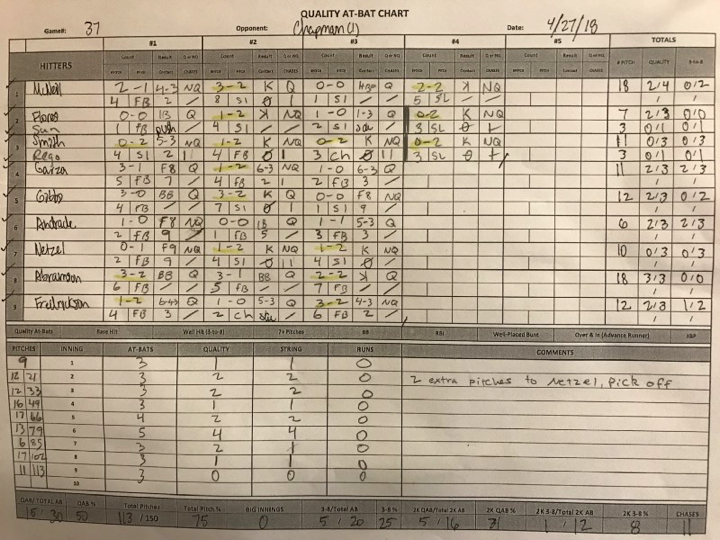 QUALITY AT-BAT CHART
Game#: 37 Opponent: Chapman (1) Date: 4/27/18
#1 #2 #3 #4 #5 TOTALS
HITTERS # PITCH QUALITY
1 McNeil 2-1 4-3 NQ 3-2 K Q 0-0 HBP Q 2-2 K NQ 18 2/4 0/2
4 FB 2 / 8 SI 0 1 1 SI / / 5 SL / /
2 Flores 0-0 1B Q 1-2 K NQ 1-0 1-3 Q 0-2 K NQ 7 2/3 0/0
Sun 1 FB push 4 SI / / 2 SI 3 SL 3 0/1 0/1
3 Smith 0-2 5-3 NQ 1-2 K NQ 0-2 K NQ 0-2 K NQ 11 0/3 0/3
Rego 4 SI 2 1 4 FB 0 1 3 Ch 0 11 3 SL 3 0/1 0/1
4 Garza 3-1 F8 Q 1-2 6-3 NQ 1-0 6-3 Q 11 2/3 2/3
5 FB 7 / 4 FB 2 1 2 FB 3 /
5 Gibbs 3-0 BB Q 3-2 K Q 0-0 F8 NQ 12 2/3 0/2
4 FB / / 7 SI 0 1 1 SI 9 /
6 Andrade 1-0 F8 NQ 0-0 1B Q 1-1 5-3 Q 6 2/3 2/3
2 FB 9 / 1 FB 5 / 3 FB 3 /
7 Netzel 0-1 F9 NQ 1-2 K NQ 1-2 K NQ 10 0/3 0/3
2 FB 9 / 4 SI 0 11 4 SI 0 /
8 Abramson 3-2 BB Q 3-1 BB Q 2-2 K Q 18 3/3 0/0
6 FB / / 5 FB / / 7 FB / /
9 Fredrickson 1-2 6-43 Q 1-0 5-3 Q 3-2 4-3 NQ 12 2/3 1/2
4 FB 3 / 2 Ch 6 FB 2 /
Quality At-Bats Base Hit Well Hit (5-to-8) 7+ Pitches BB RBI Well-Placed Bunt Over & In (Advance Runner) HBP
PITCHES INNING AT-BATS QUALITY STRING RUNS COMMENTS
9 1 3 1 1 0
12 21 2 3 2 2 0 2 extra pitches to Netzel, pick off
12 33 3 3 2 2 0
16 49 4 3 1 1 0
17 66 5 4 2 2 0
13 79 6 5 4 4 0
6 85 7 3 2 1 0
17 102 8 3 1 1 0
11 113 9 3 0 0 0
10
QAB/ TOTAL AB 15/30 QAB % 50 Total Pitches 113 / 150 Total Pitch % 75 BIG INNINGS 0 5-8/Total AB 5 / 20 5-8 % 25 2K QAB/Total 2K AB 5 / 16 2K QAB % 31 2K 5-8/Total 2K AB 1 / 12 2K 5-8 % 8 CHASES 11